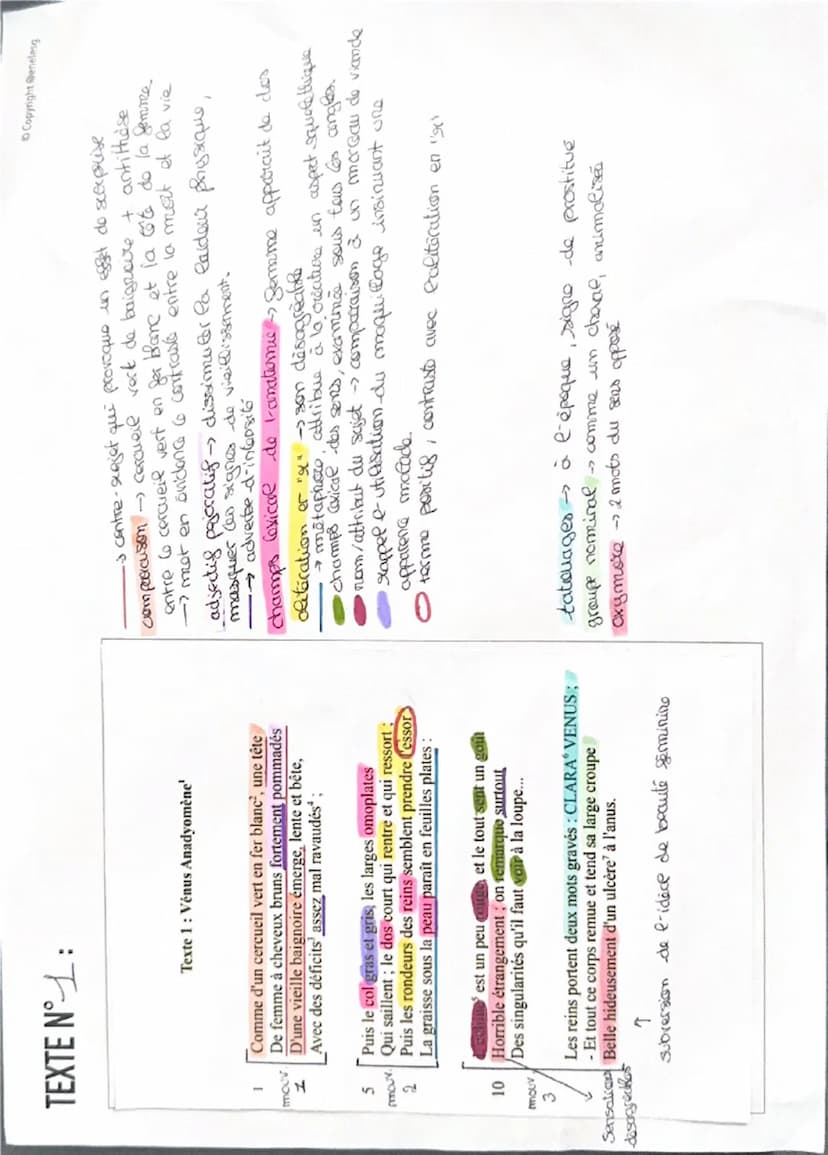 © Copyright @enelesg
TEXTE N° 1 :
Texte 1 : Vénus Anadyomène¹
1
Comme d'un cercueil vert en fer blanc², une tête
De femme à cheveux bruns fortement pommadés
D'une vieille baignoire émerge, lente et bête,
Avec des déficits³ assez mal ravaudés⁴ ;
mouv.
1
5
Puis le col gras et gris, les larges omoplates
Qui saillent ; le dos court qui rentre et qui ressort ;
Puis les rondeurs des reins semblent prendre l'essor ;
La graisse sous la peau paraît en feuilles plates :
mouv.
2
L'échine⁵ est un peu rouge, et le tout sent un goût
10
Horrible étrangement ; on remarque surtout
Des singularités qu'il faut voir à la loupe...
mouv.
3
Les reins portent deux mots gravés : CLARA⁶ VENUS ;
- Et tout ce corps remue et tend sa large croupe
Belle hideusement d'un ulcère⁷ à l'anus.
Sensations
désagréables
↑
subversion de l'idéal de beauté féminine
→ contre-rejet qui provoque un effet de surprise
comparaison → cercueil vert de baignoire + antithèse
entre le cercueil vert en fer blanc et la tête de la femme.
→ met en évidence le contraste entre la mort et la vie
adjectif péjoratif → dissimuler la laideur physique,
masquer les signes de vieillissement.
→ adverbe d'intensité
champs lexical de l'anatomie → femme apparait de dos
alitération en "r" → son désagréable
→ métaphore, attribue à la créature un aspect squelettique
champs lexical des sens, examinée sous tous les angles.
nom/attribut du sujet → comparaison à un morceau de viande
rappel l'utilisation du maquillage insinuant une
apparence maccabe.
terme positif, contraste avec l'alitération en "r"
tatouages → à l'époque, signe de prostitué
groupe nominal → comme un cheval, animalisé
oxymore → 2 mots du sens opposé